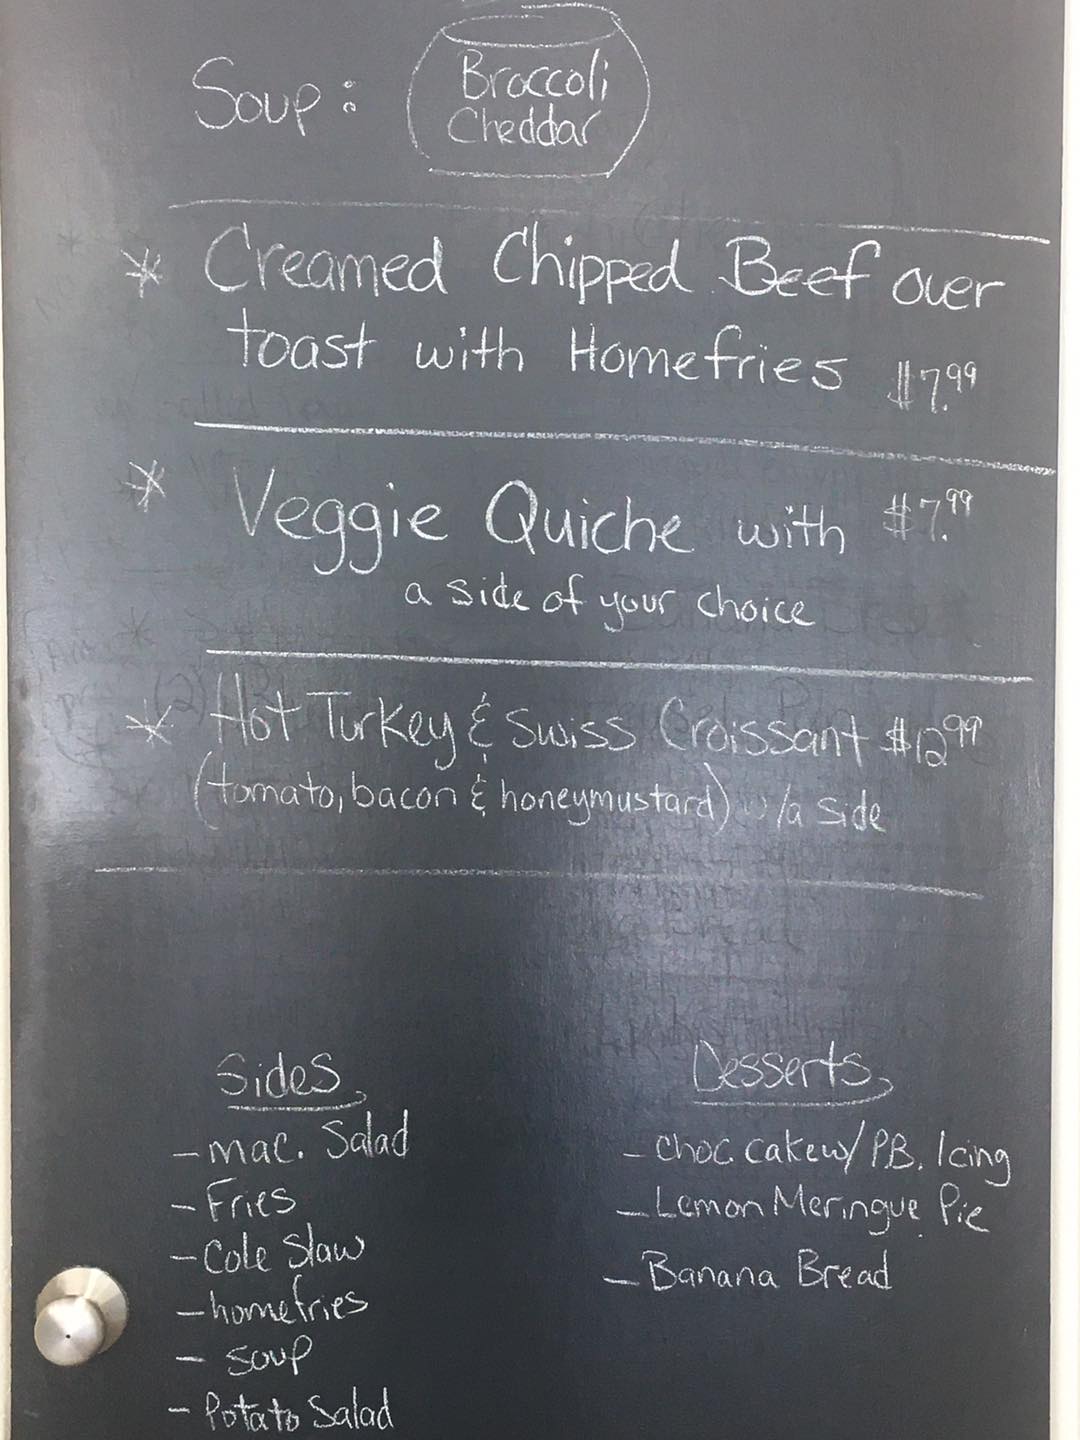 Soup: Broccoli
Cheddar
* Creamed Chipped Beef over
toast with Homefries $7.99
* Veggie Quiche with $7.99
a side of your choice
* Hot Turkey & Swiss Croissant $12.99
(tomato, bacon & honeymustard) w/a side
Sides
- mac. Salad
- Fries
- Cole Slaw
- homefries
- soup
- Potato Salad
Desserts
- choc. cake w/ P.B. Icing
- Lemon Meringue Pie
- Banana Bread